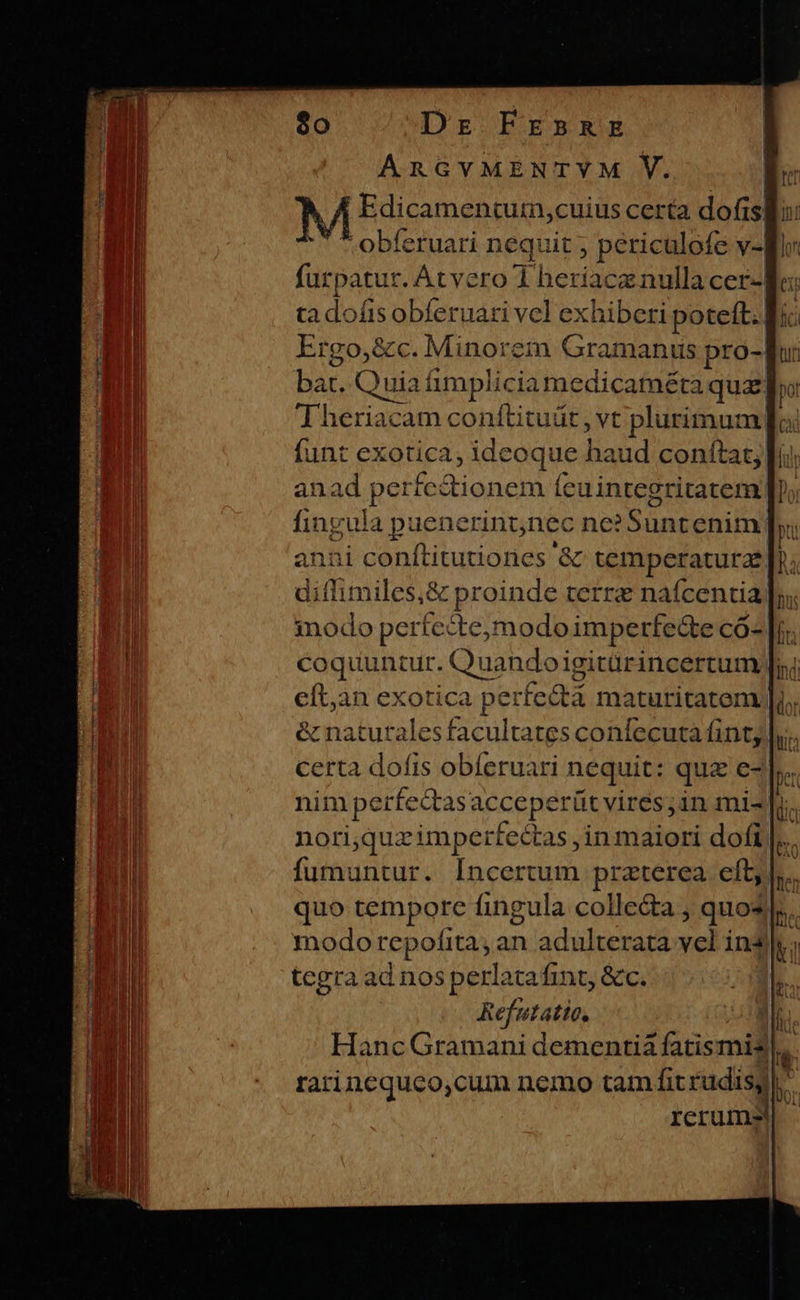 80 DE FEBRE
ARGVMENTVM V.
MEdicamentum,cuius certa dosis
obseruari nequit, periculose v-
surpatur. At vero Theriacæ nulla cer-
ta dosis obseruari vel exhiberi potest.
Ergo,&c. Minorem Gramanus pro-
bat. Quia simplicia medicamēta quæ
Theriacam constituūt, vt plurimum
sunt exotica, ideoque haud constat,
an ad perfectionem seu integritatem
singula puenerint,nec ne? Sunt enim
anni constitutiones & temperaturæ
dissimiles,& proinde terræ nascentia
modo perfecte,modo imperfecte cō-
coquuntur. Quando igitur incertum
est,an exotica perfectā maturitatem
& naturales facultates consecuta sint,
certa dosis obseruari nequit: quæ e-
nim perfectas acceperūt vires, in mi-
nori,quæ imperfectas, in maiori dosi
sumuntur. Incertum præterea est,
quo tempore singula collecta, quo-
modo reposita, an adulterata vel in-
tegra ad nos perlata sint, &c.
Refutatio.
Hanc Gramani dementiā satis mi-
rari nequeo,cum nemo tam sit rudis,
rerum-